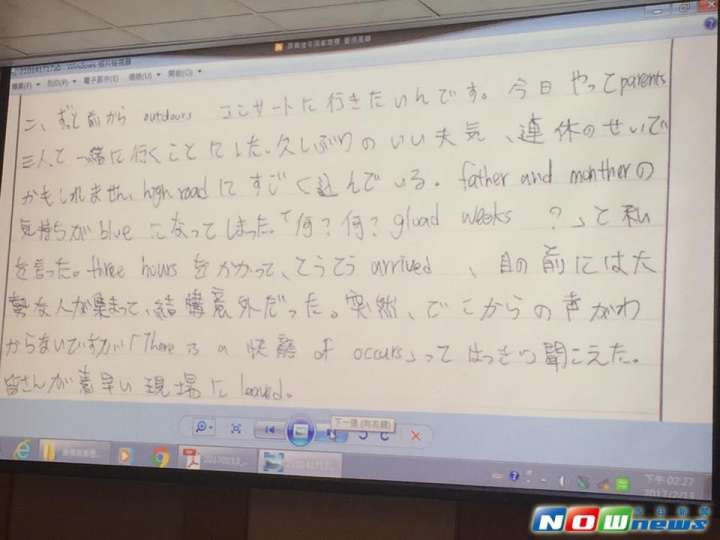 Windows 相片檢視器
檔案(F) 列印(P) 電子郵件(E) 燒錄(U) 開啟(O)
二、ずっと前から outdours コンサートに行きたいんです。今日 やって parents
三人で一緒に行くことにした。久しぶりのいい天気、連休のせいで
かもしれません、high road にすごく込んでいる。father and monther の
気持ちが blue になってしまった。「何?何? gluad weeks ?」と私
を言った。three hours をかかって、とうとう arrived 、目の前には大
勢な人が集まって、結構意外だった。突然、どこからの声がわ
からないですが「There is a 快 of occurs」ってはっきり聞こえた。
皆さんが素早い現場に leaved。
下一張 (向右鍵)
下午 02:27
NOWnews